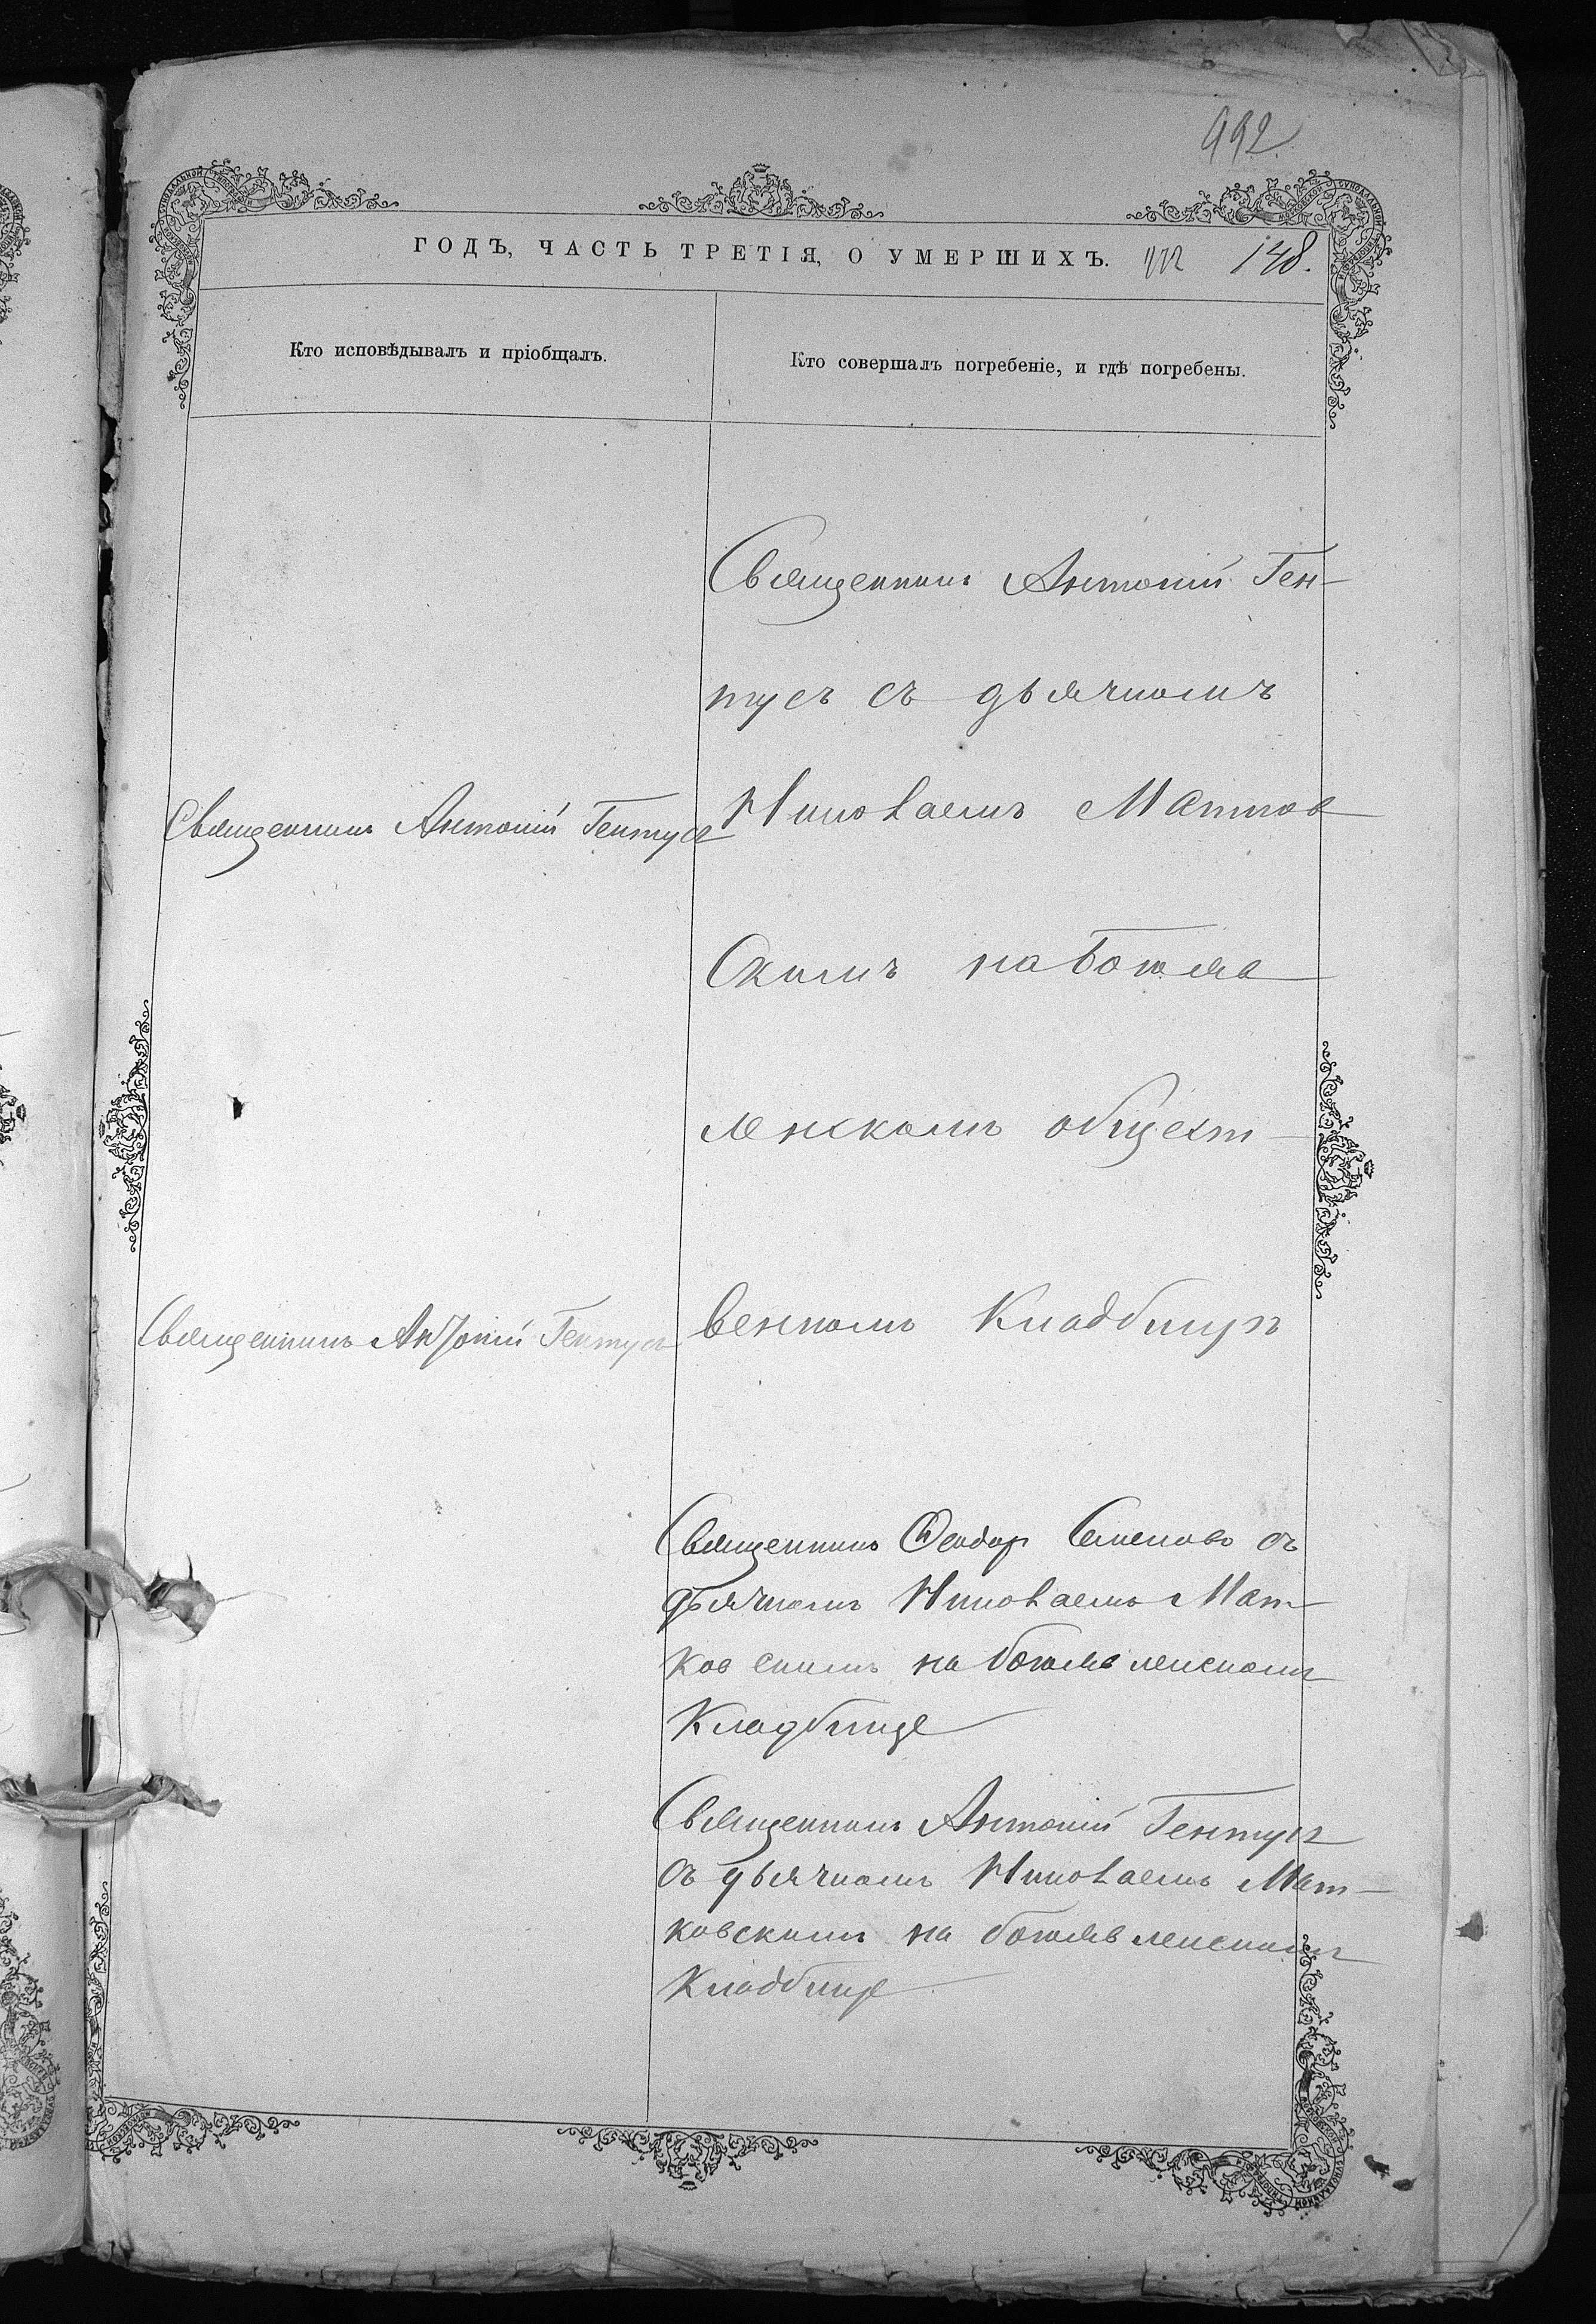 992
ГОДЪ, ЧАСТЬ ТРЕТІЯ, О УМЕРШИХЪ. 148.
Кто исповѣдывалъ и пріобщалъ.
Кто совершалъ погребеніе, и гдѣ погребены.
Священникъ Антоній Гентусъ
Священникъ Антоній Гентусъ
Священникъ Антоній Ген-
тусъ съ дьячкомъ
Николаемъ Матков
скимъ на Богояв
ленскомъ общест-
венномъ Кладбищѣ
Священникъ Ѳеодор Семеновъ съ
дьячкомъ Николаемъ Мат-
ков скимъ на богоявленскомъ
Кладбище
Священникъ Антоній Гентусъ
съ дьячкомъ Николаемъ Мат-
ковскимъ на богоявленскомъ
Кладбище